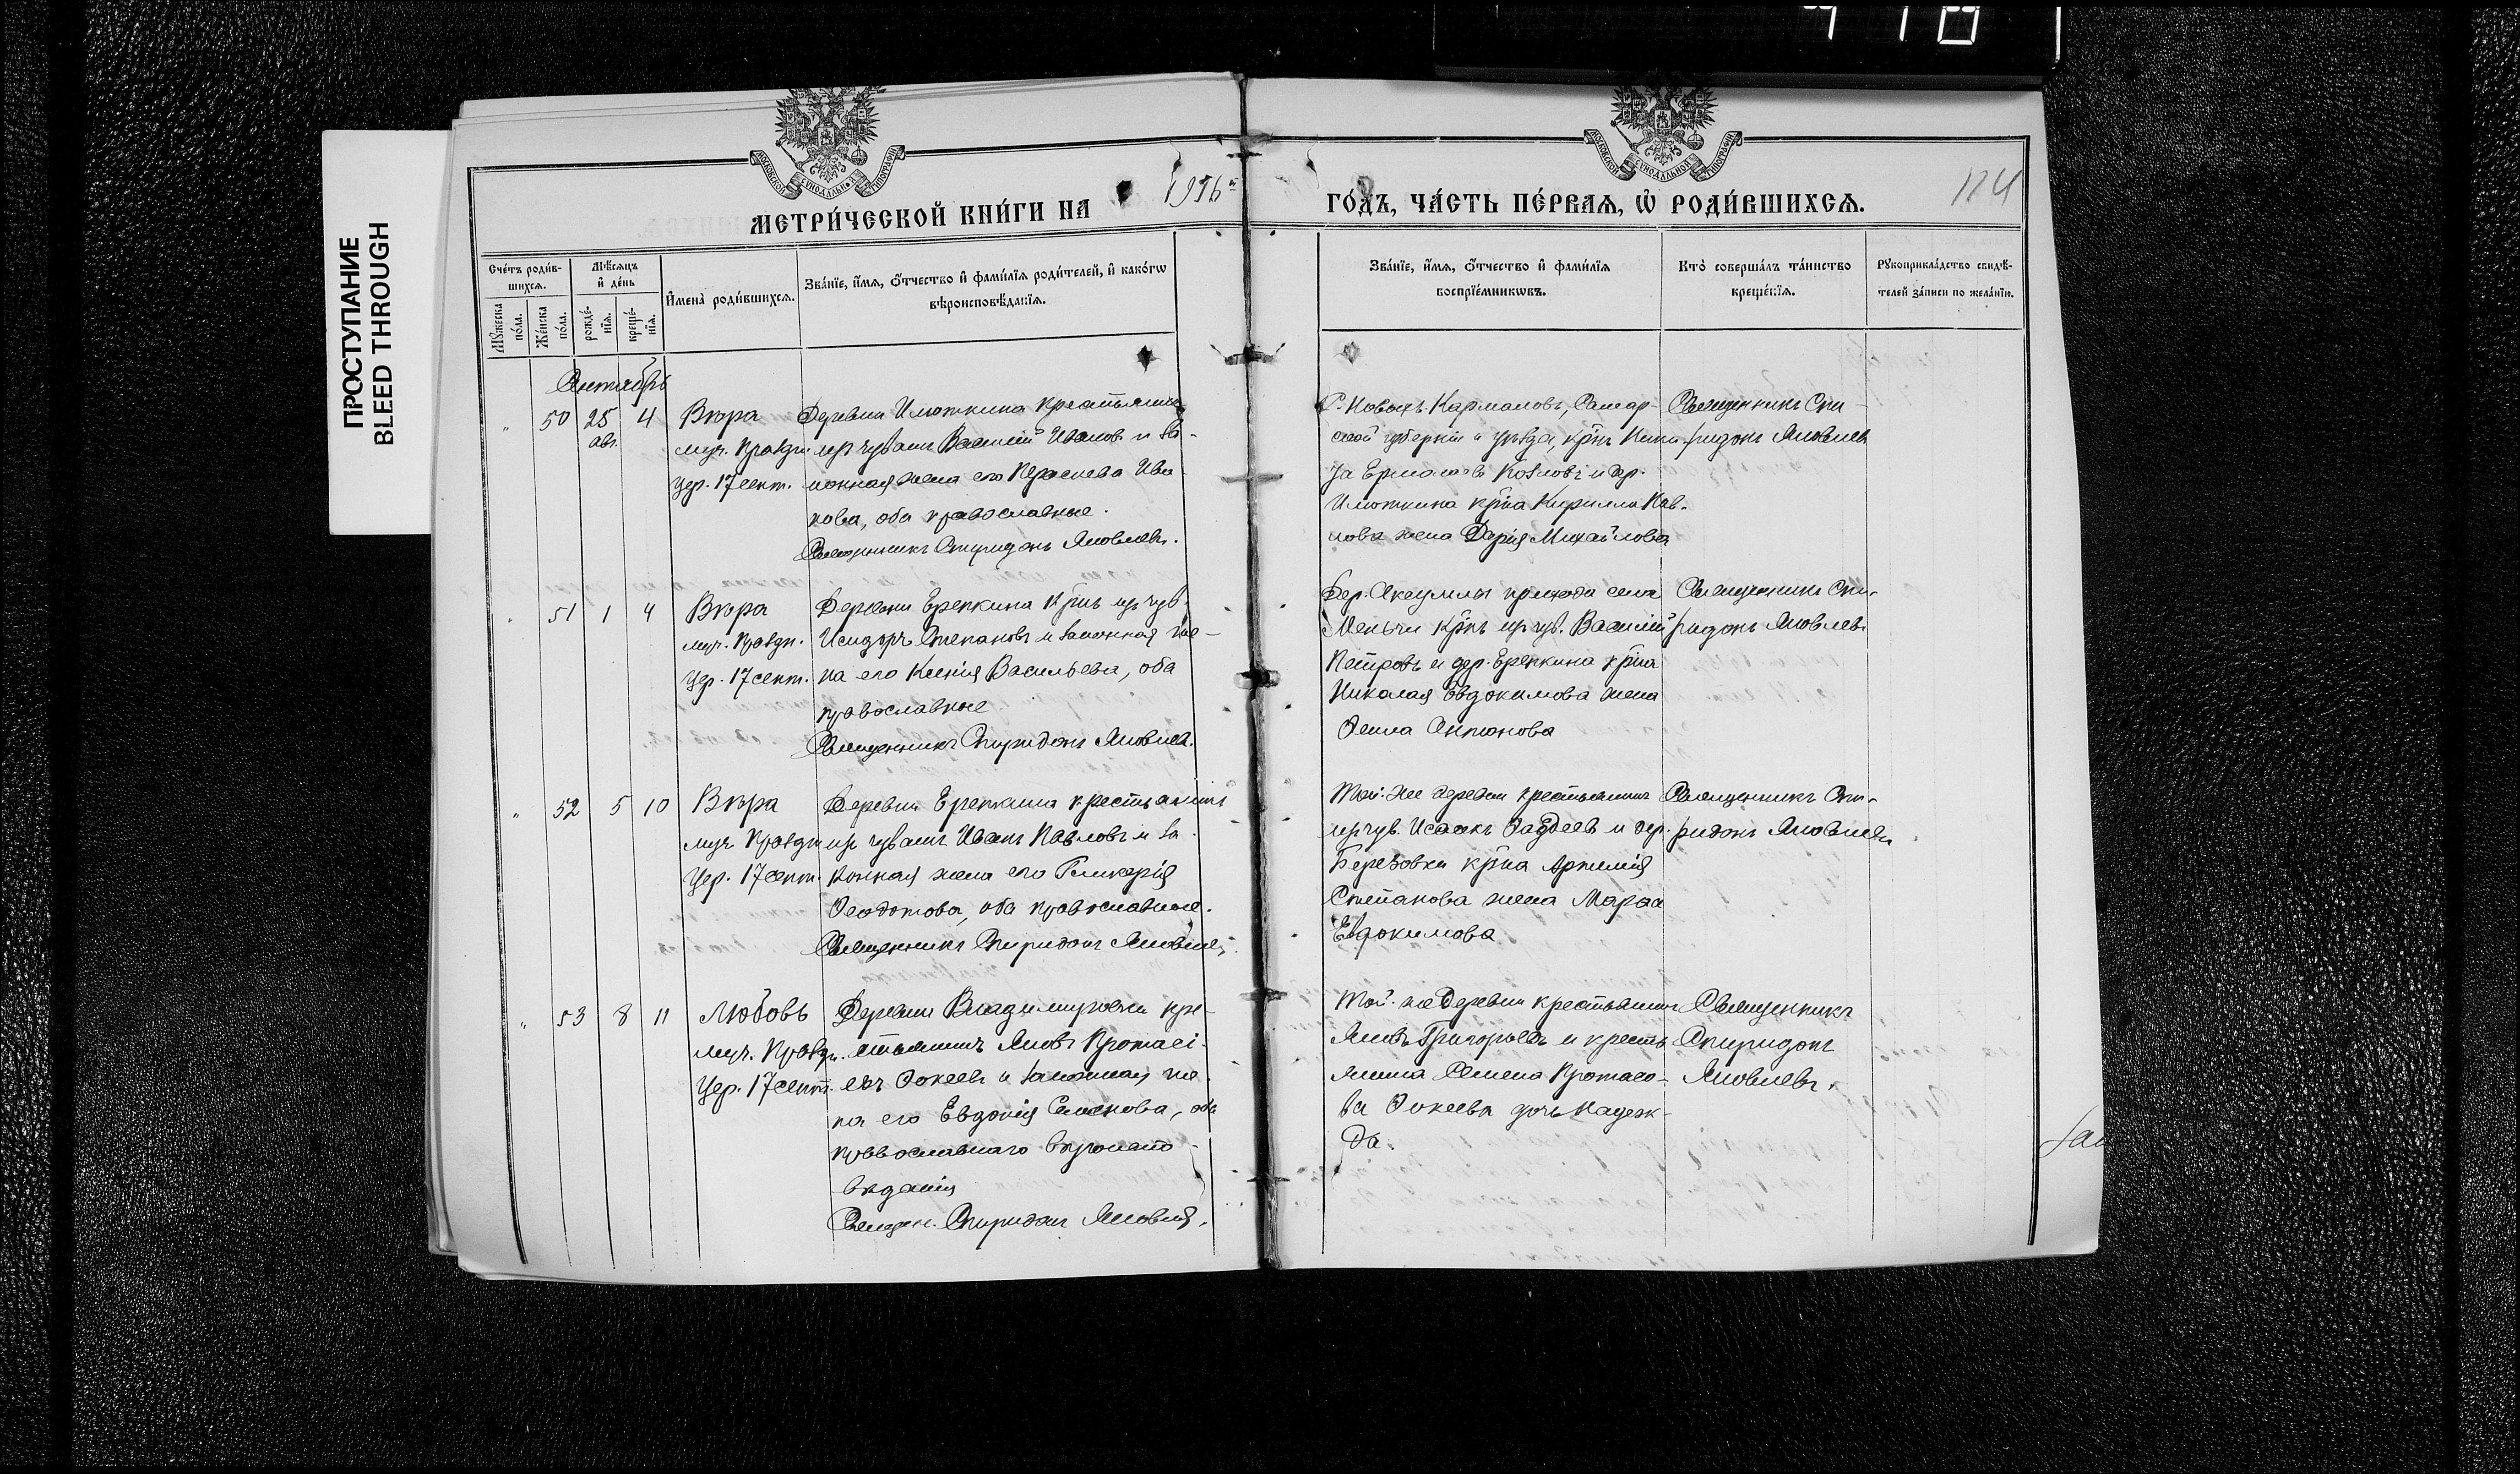 ПРОСТУПАНИЕ
BLEED THROUGH
МОСКОВСКОЙ СѴНОДАЛЬНОЙ ТИПОГРАФІИ
МОСКОВСКОЙ СѴНОДАЛЬНОЙ ТИПОГРАФІИ
МЕТРИ́ЧЕСКОЙ КНИ́ГИ НА 1916 ГО́ДЪ, ЧА́СТЬ ПЕ́РВАѦ, Ѡ҆ РОДИ́ВШИХСѦ.
Сче́тъ роди́в-
шихсѧ.
Мꙋ́жеска
по́ла.
Же́нска
по́ла.
Мѣ́сѧцъ
и҆ де́нь
рожде́-
нїѧ.
креще́-
нїѧ.
И҆мена̀ роди́вшихсѧ.
Зва́нїе, и҆́мѧ, ѻ҆́тчество и҆ фами́лїѧ роди́телей, и҆ како́гѡ
вѣроисповѣ́данїѧ.
Зва́нїе, и҆́мѧ, ѻ҆́тчество и҆ фами́лїѧ
воспрїе́мникѡвъ.
Кто̀ соверша́лъ та́инство
креще́нїѧ.
Рꙋкоприкла́дство свидѣ́-
телей за́писи по жела́нїю.
Октябрь
50 25 4
авг.
Вѣра
муч. Праздн.
цер. 17 сент.
Деревни Илюткина крестьянинъ
изъ чувашъ Василій Ивановъ и за-
конная жена его Параскева Ива-
нова, оба православные.
Священникъ Спиридонъ Яковлевъ.
С. Новыхъ Кармаловъ, Самар-
ской губерніи и уѣзда, кр̃нъ Ники-
та Ермолаевъ Козловъ и дер.
Илюткина кр̃на Кирилла Пав-
лова жена Дарія Михайлова
Священникъ Спи-
ридонъ Яковлевъ
51 1 4
Вѣра
муч. Праздн.
цер. 17 сент.
Деревни Ерепкина кр̃нъ изъ чув.
Исидоръ Степановъ и законная же-
на его Ксенія Васильева, оба
православные
Священникъ Спиридонъ Яковлевъ.
Дер. прихода села
кр̃нъ изъ чув. Василій
Петровъ и дер. Ерепкина кр̃на
Николая Евдокимова жена
Ѳекла Антонова
Священникъ Спи-
ридонъ Яковлевъ
52 5 10
Вѣра
муч. Праздн.
цер. 17 сент.
Деревни Ерепкина крестьянинъ
изъ чувашъ Иванъ Павловъ и за-
конная жена его Гликерія
Ѳеодотова, оба православные.
Священникъ Спиридонъ Яковлевъ
Той-же деревни крестьянинъ
изъ чув. Исаакъ Ѳаддеевъ и дер.
Березовки кр̃на Артемія
Степанова жена Марѳа
Евдокимова
Священникъ Спи-
ридонъ Яковлевъ
53 8 11
Любовь
муч. Праздн.
Цер. 17 сент.
Деревни Владимировки кре-
стьянинъ Яковъ Протасі-
евъ Ѳокеевъ и законная же-
на его Евдокія Семенова, оба
православнаго вѣроиспо-
вѣданія
Священ. Спиридонъ Яковлевъ.
Той-же деревни крестьянинъ
Яковъ Григорьевъ и кресть-
янина Семена Протасо-
ва Ѳокеева дочь Надеж-
да.
Священникъ
Спиридонъ
Яковлевъ.